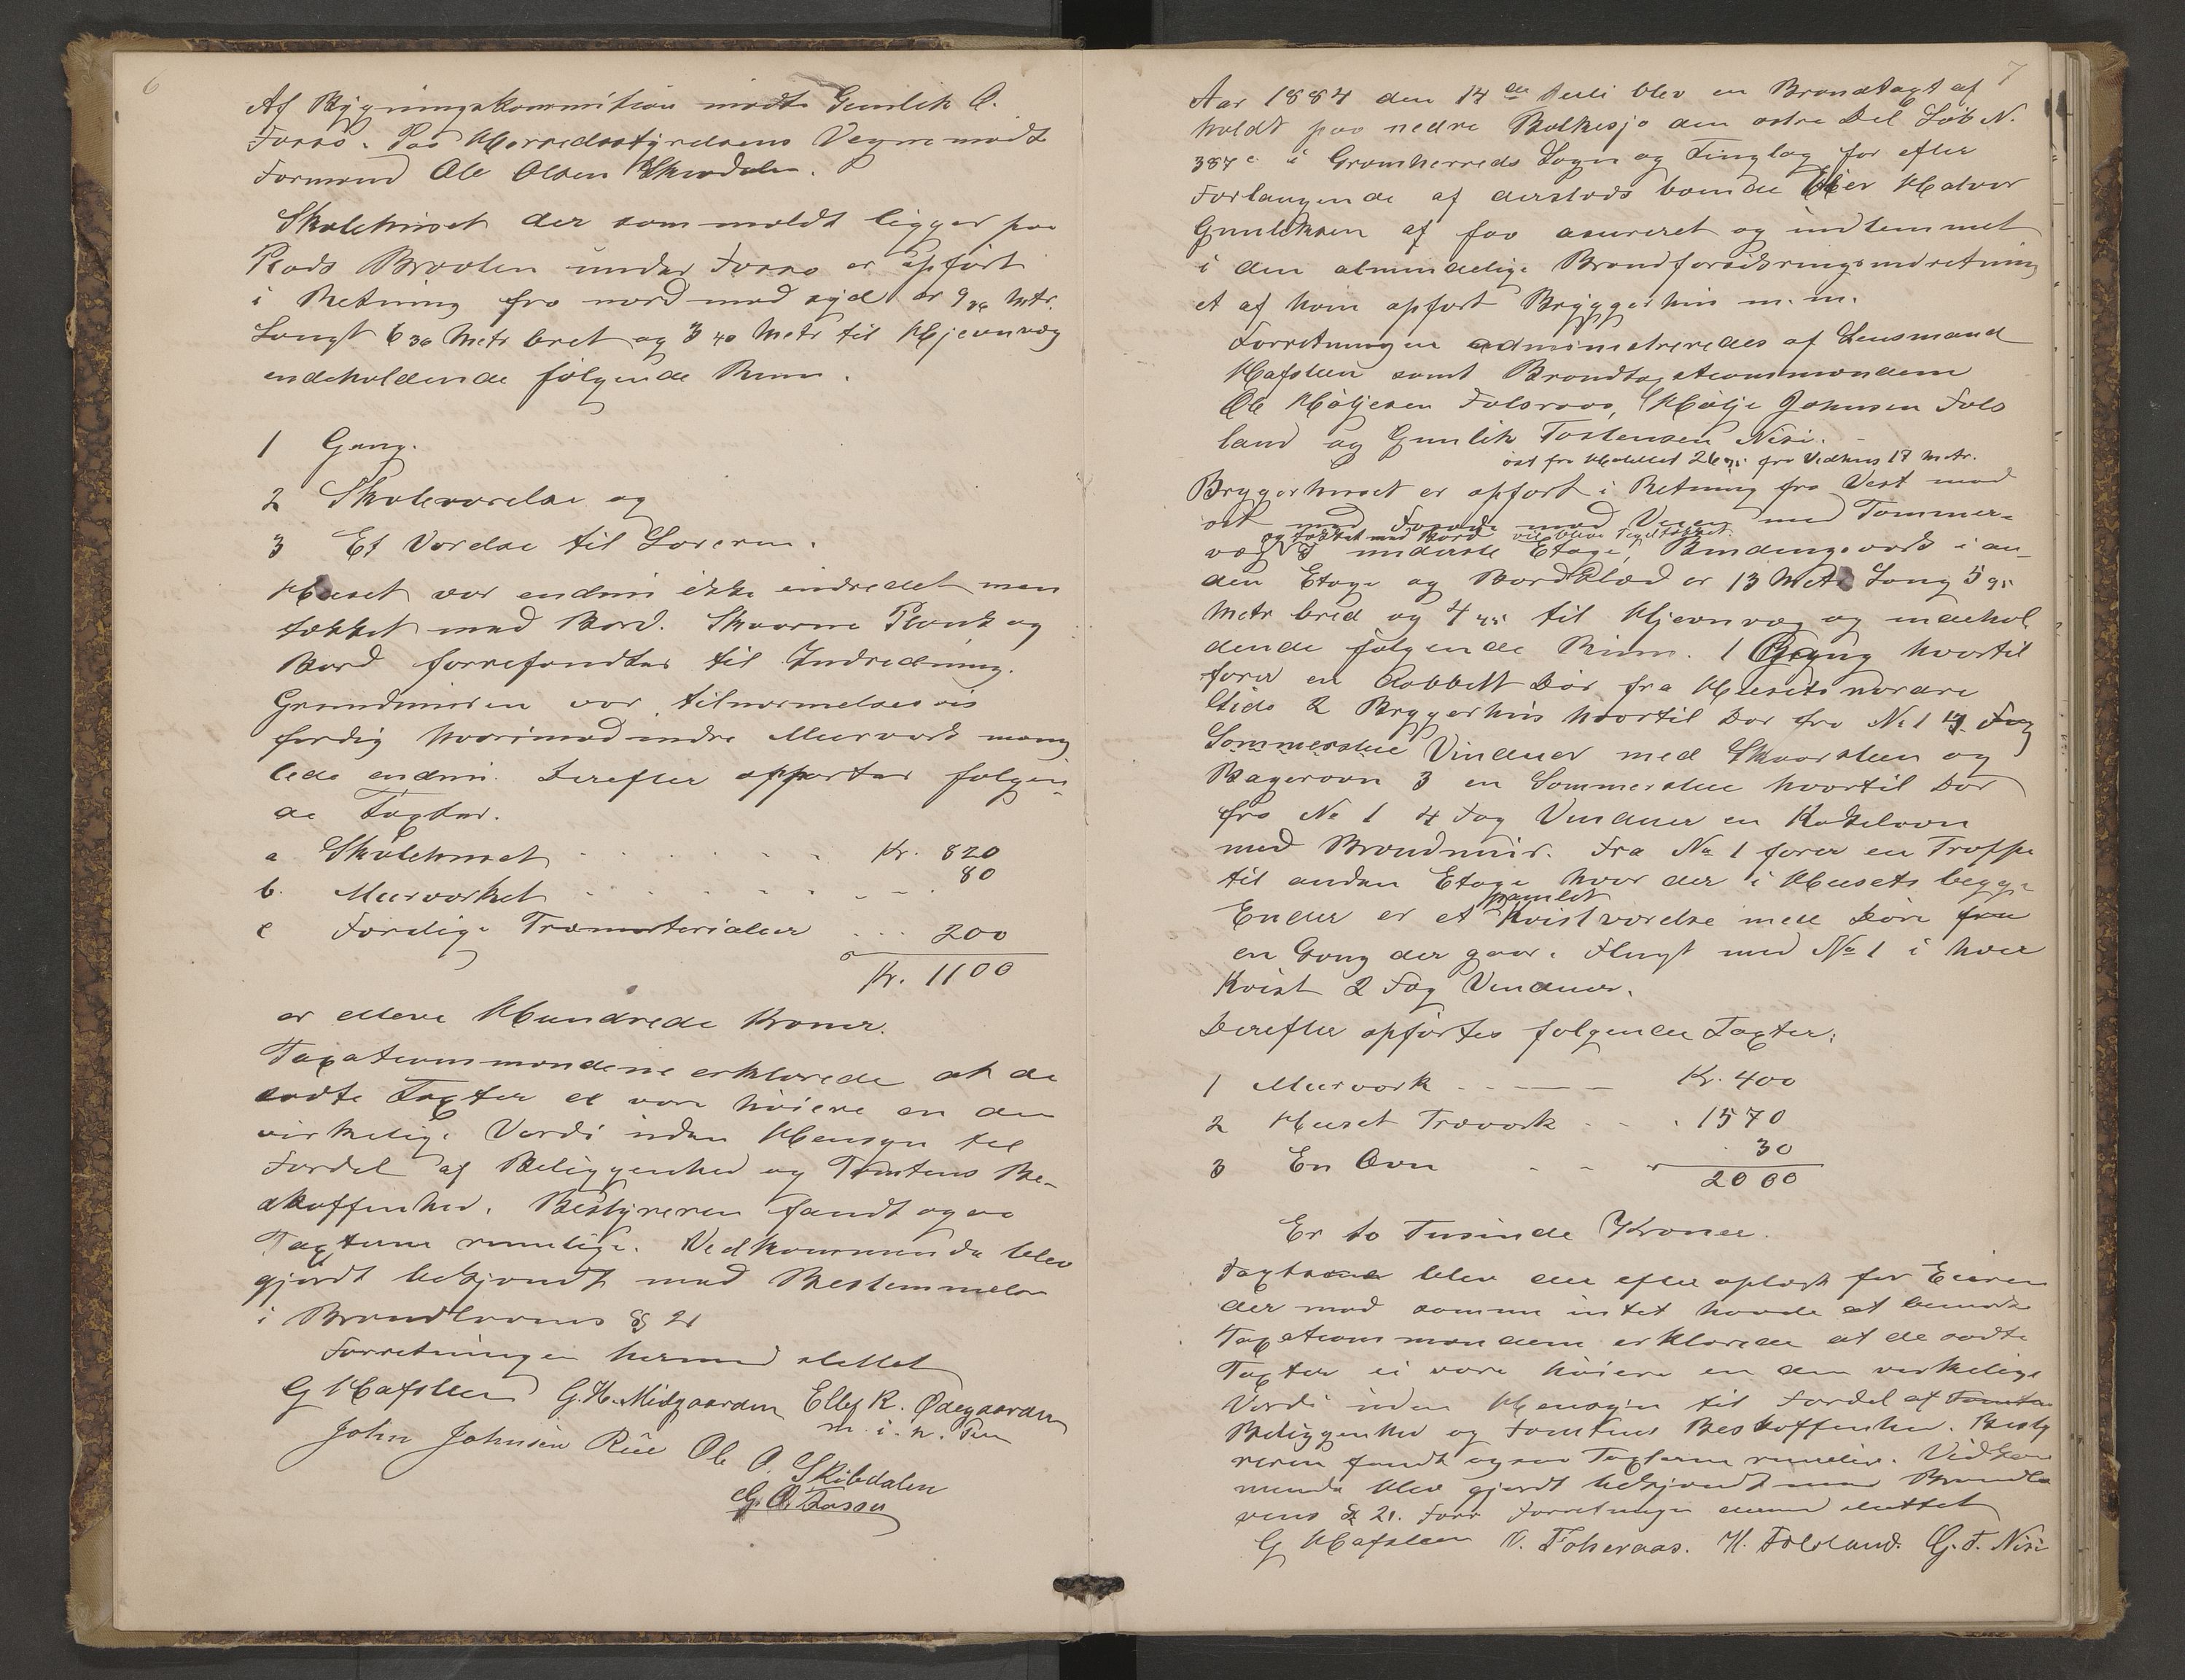 6
Af Bygningskommition mødte Gunlik O.
Fosso. Paa Herredsstyrelsens Vegne mødt
Formand Ole Olsen Skredalen.
Skolehuset der som meldt ligger paa
Plads Braaten under Fosso er opført
i Retning fra nord mod syd er 9 30 Metr.
Langt 6 30 Metr bret og 3 40 Metr til Hjevnvæg
endeholdende følgende Rum.
1 Gang.
2 Skoleværelse og
3 Et Værelse til Læreren.
Huset var endnu ikke indredet men
tækket med Bord. Skaarne Plank og
Bord forrefandtes til Indredning.
Grundmuren var tilnærmelsesvis
ferdig hvorimod indre Muurværk mang
lede endnu. Derefter opførtes følgen-
de Taxter.
a Skolehuset Kr. 820
b. Muurværket 80
c Færdige Træmaterialier 200
Kr. 1100
er elleve Hundrede Kroner.
Taxationsmændene erklærede at de
satte Taxter ei vare høiere en den
virkelige Værdi uden Hensyn til
Fordel af Beliggenhed og Tomtens Be-
skaffenhed. Bestyreren fandt ogsaa
Taxterne rimelige. Vedkommende blev
gjordt bekjendt med Bestemmelsen
i Brandlovens § 21
Forretningen hermed sluttet
G Hafsteen G. H. Midgaarden Ellef R. Ødegaarden
m. i. h. Pen
John Johnsen Rue Ole O. Skibdalen
G. O. Fosso
7
Aar 1884 den 14de Juli blev en Brandtaxt af
holdt paa nedre Bolkesjø den østre Del Løb N.
387 c i Gromherreds Sogn og Tinglag for efter
Forlangende af dersteds boende Eier Halvor
Gunleksen af faa asureret og indlemmet
i den almindelige Brandforsikringsindretning
et af ham opført Bryggerhus m. m.
Forretningen administreredes af Lensmand
Hafsteen samt Brandtaxationsmændene
Ole Høljesen Folseraas, Hølje Johnsen Fols
land og Gunlik Tostensen Nisi.
øst fra Hotellet 26 75 fra Vedhus 17 Metr.
Bryggerhuset er opført i Retning fra Vest mod
øst med Fasade mod Veien med Tømmer-
og tækket med Bord vil blive Tegeltækket.
væg I underste Etage, Bindingsværk i an
den Etage og Bordklæd er 13 Metr Lang 5 95
Metr bred og 4 45 til Hjevnvæg og indehol
dende følgende Rum. 1 Gang hvortil
fører en dobbelt Dør fra Husets nordre
Side 2 Bryggerhus hvortil Dør fra No 1 4 Fag
Sommerstue Vinduer med Skaarsteen og
Bagerovn 3 en Sommerstue hvortil Dør
fra No 1 4 Fag Vinduer en Kakelovn
med Brandmur. Fra No 1 fører en Trappe
til anden Etage hvor der i Husets begge
panelet
Ender er et Kvistværelse med Døre fra
en Gang der gaar i Flugt med No 1 i hver
Kvist 2 Fag Vinduer.
Derefter opførtes følgende Taxter:
1 Muurværk Kr. 400
2 Huset Træværk 1570
3 En Ovn 30
2000
Er to Tusinde Kroner.
Taxterne blev der efter oplæst for Eieren
der mod samme intet havde at bemærke
Taxationsmændene erklærede at de satte
Taxter ei vare høiere en den verkelige
Værdi uden Hensyn til Fordel af Tomten
Beliggenhed og Tomtens Beskaffenhed. Besty
reren fandt ogsaa Taxterne rimelig. Vedkom
mende blev gjordt bekjendt med Brandlo
vens § 21. Forr Forretningen dermed sluttet
G Hafsteen O. Folseraas. H. Folsland. G. T. Nisi